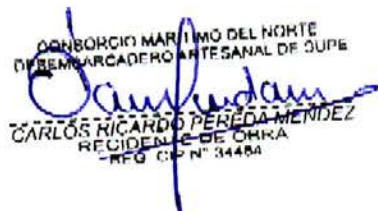 CONSORCIO MARITIMO DEL NORTE
DESEMBARCADERO ARTESANAL DE SUPE
CARLOS RICARDO PEREDA MENDEZ
RECIDENTE DE OBRA
REG. CIP N° 34484